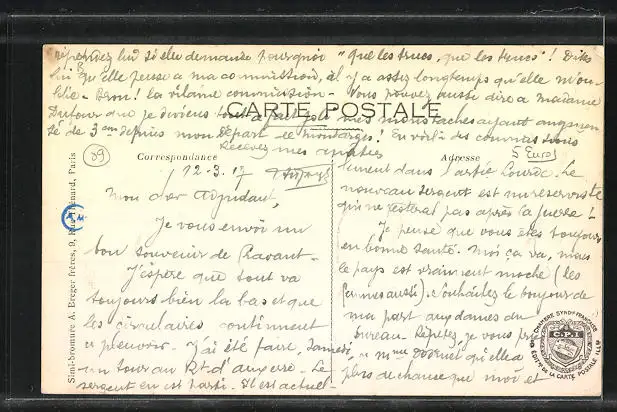 répondez lui si elle demande pourquoi "que les trucs, que les trucs"! Dites
lui qu'elle pense a ma commission, il y a assez longtemps qu'elle m'ou-
blie - Brou! la vilaine commission - Vous pouvez aussi dire a Madame
Dufour que je deviens tout a fait joli mes moustaches ayant augmen
té de 3 cm depuis mon départ de Montargis! En voilà des
Recevez mes amitiés
CARTE POSTALE
Correspondance
Adresse
89
5 Euros
12-3.17
Mon cher Adjudant,
Je vous envoie un
bon souvenir de
J'espère que tout va
toujours bien la bas et que
les circulaires continuent
a pleuvoir. J'ai été faire, samedi
un tour au Rt d'auxerre. Le
sergent en est parti. Il est actuel-
lement dans l'artie Lourde. Le
nouveau sergent est un réserviste
qui ne restera pas après la guerre!
Je pense que vous êtes toujours
en bonne santé. Moi ça va, mais
le pays est vraiment moche (les
femmes aussi). Souhaitez le bonjour de
ma part aux dames du
bureau. Répétez, je vous prie
a Mme qu'elle a
plus de chance que moi et
Simi-bromure A. Breger frères, 9, Rue Thénard, Paris
CHAMBRE SYNDle FRANÇAISE
C.P.I
DES ÉDITrs DE LA CARTE POSTALE ILLée